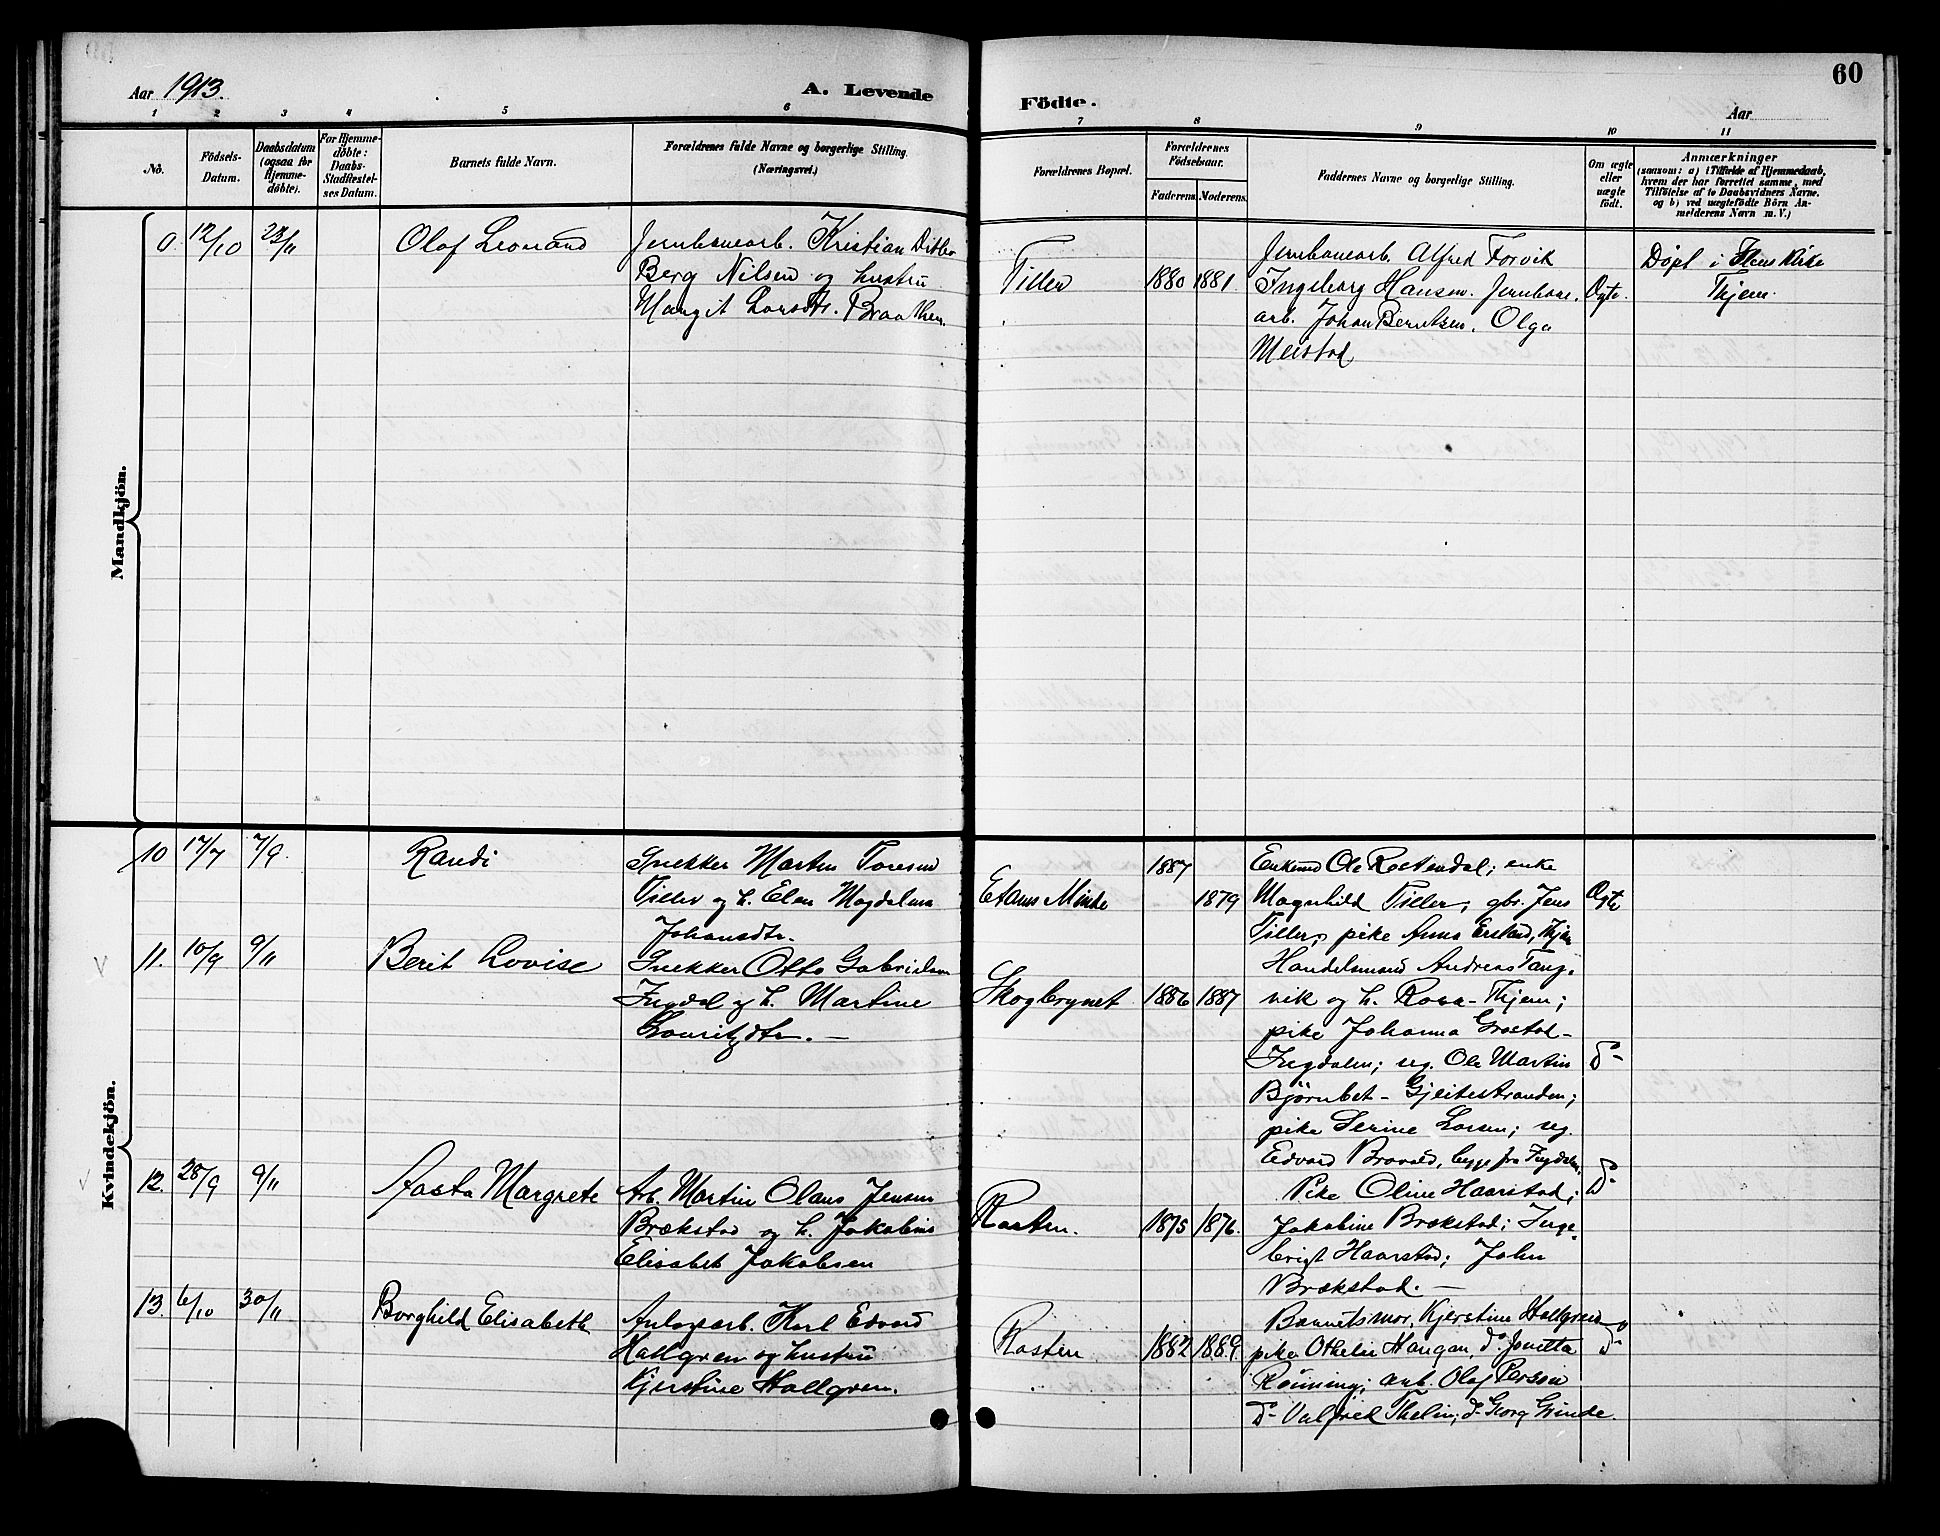 Aar 1913.
A. Levende
Födte.
Aar
60
1 2 3 4 5 6 7 8 9 10 11
No.
Födsels-
Datum.
Daabsdatum
(ogsaa for
Hjemme-
döbte).
For Hjemme-
döbte:
Daabs-
Stadfestel-
ses Datum.
Barnets fulde Navn.
Forældrenes fulde Navne og borgerlige Stilling.
(Næringsvei.)
Forældrenes Bopæl.
Forældrenes
Födselsaar.
Faderens. Moderens.
Faddernes Navne og borgerlige Stilling.
Om ægte
eller
uægte
födt.
Anmærkninger
(saasom: a) i Tilfælde af Hjemmedaab,
hvem der har forrettet samme, med
Tilföielse af to Daabsvidners Navne.
og b) ved uægtefödte Börn An-
melderens Navn m. V.)
Mandkjön.
9. 12/10 23/11
Olaf Leonard
Jernbanearb. Kristian Ditlev
Berg Nilsen og hustru
Margit Larsdtr. Braathen.
Tiller
1880 1881.
Jernbanearb. Alfred Forvik
Ingeborg Hansen. Jernbane.
arb. Johan Berntsen. Olga
Meistad
Ægte.
Døpt i Ilens Kirke
Thjem.
Kvindekjön.
10 17/7 7/9.
Randi
Snekker Martin Toresen
Tiller og h. Elen Magdalena
Johansdtr.
Etams Minde
1887
1879
Enkemd Ole Rostendal; enke
Magnhild Tiller, gbr. Jens
Tiller, pike Anna Erstand, Thjem
Ægte
11. 10/9 9/11
Berit Lovise
Snekker Otto Gabrielsen
Ingdal og h. Martine
Lauritzdtr. —
Skogbrynet
1886 1887
Handelsmand Andreas Tang-
vik og h. Rosa - Thjem;
pike Johanna Grostad -
Ingdalen; ug. Ole Martin
Bjørnbet - Gjeitestranden;
pike Serine Larsen; ug.
Edvard Bravold, begge fra Ingdalen.
do
12. 28/9 9/11
Aasta Margrete
Arb. Martin Olaus Jensen
Brækstad og h. Jakobine
Elisabet Jakobsen
Rosten.
1875 1876.
Pike Oline Haarstad;
Jakobine Brækstad; Inge-
brigt Haarstad; John
Brækstad. —
do
13. 6/10 30/11
Borghild Elisabeth
Anlegsarb. Karl Edvard
Hallgren og hustru
Kjerstine Hallgren.
Rosten
1882 1889.
Barnetsmor, Kjerstine Hallgren
pike Othelie Haugan, do Jonetta
Rönning; arb. Olaf Person
do Valfrid Thelin; do Georg Grinde.
do